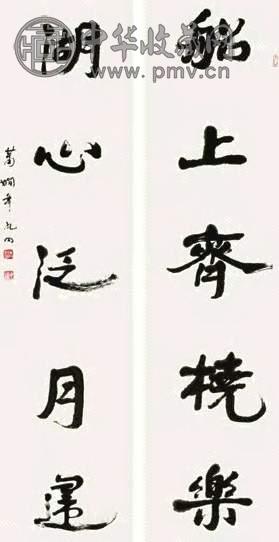 中华收藏网
www.pmv.cn
船上齊橈樂
湖心泛月歸
蕭嫻年九四